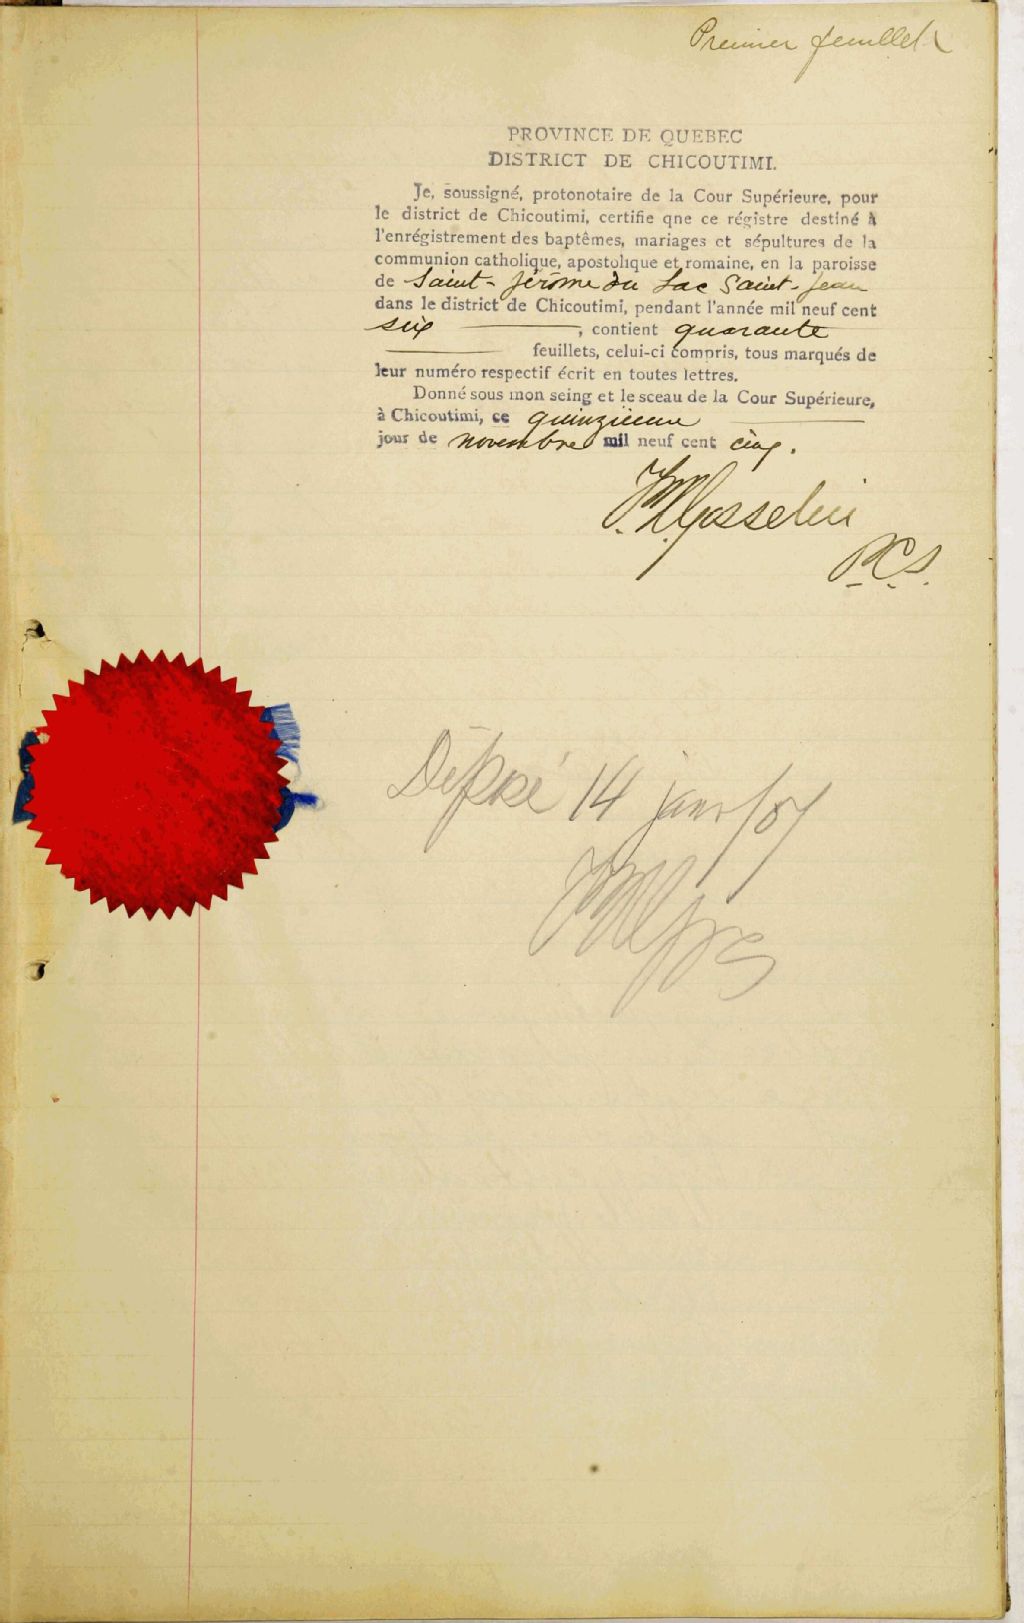 Premier feuillet
PROVINCE DE QUEBEC
DISTRICT DE CHICOUTIMI.
Je, soussigné, protonotaire de la Cour Supérieure, pour
le district de Chicoutimi, certifie qne ce régistre destiné à
l'enrégistrement des baptêmes, mariages et sépultures de la
communion catholique, apostolique et romaine, en la paroisse
de Saint-Jérôme du Lac Saint-Jean
dans le district de Chicoutimi, pendant l'année mil neuf cent
six, contient quarante
feuillets, celui-ci compris, tous marqués de
leur numéro respectif écrit en toutes lettres.
Donné sous mon seing et le sceau de la Cour Supérieure,
à Chicoutimi, ce quinzième
jour de novembre mil neuf cent cinq.
Gosselin
P.C.S.
14 janv/07